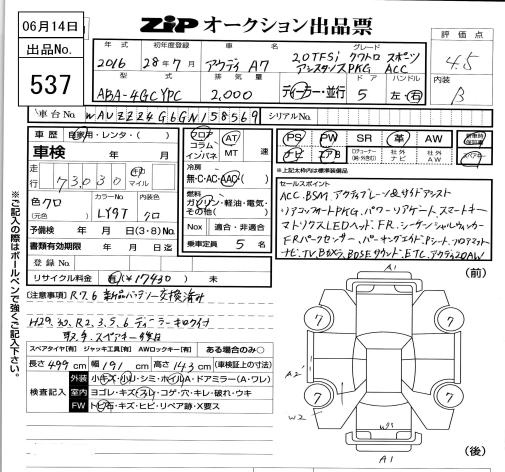 06月14日
ZiP オークション出品票
出品No.
537
年式 初年度登録 車名 グレード
2016 28年7月 アウディ A7 2.0TFSi クワトロ スポーツ
アシスタンスPKG ACC
評価点
4.5
内装
B
型式 排気量 ドア ハンドル
ABA-4GCYPC 2,000 ディーラー・並行 5 左・右
車台No. WAUZZZ4G6GN158569 シリアルNo.
車歴 自家用・レンタ・( )
車検 年 月
走行 73,030 km マイル
色 クロ カラーNo. LY9T
(元色) クロ
予備検 年 月 日(3・8)No.
書類有効期限 年 月 日
登録No.
リサイクル料金 有(¥17430) 未
フロア コラム インパネ
AT MT 速
冷房 無・C・AC・AAC
燃料 ガソリン・軽油・電気・その他( )
Nox 適合・非適合
乗車定員 5 名
PS PW SR 革 AW
ナビ エアB 社外ナビ 社外AW
新車時保証書
スペアキー
※上記太枠内は標準装備品
セールスポイント
ACC、BSM、アクティブレーン&サイドアシスト
リアコンフォートPKG、パワーリアゲート、スマートキー
マトリクスLEDヘッド、FR、シーケンシャルウィンカー
FRパークセンサー、パーキングエイド、Pシート、フロアマット
ナビ、TV、Bカメラ、BOSEサウンド、ETC、アウディ20AW
[注意事項] R7.6 新品バッテリー交換済み
H29.30.R2.3.5.6 ディーラーキロクイ付
取説、スペアキー後日
スペアタイヤ[有] ジャッキ工具[有] AWロックキー[有] ある場合のみ○
長さ 499 cm 幅 191 cm 高さ 143 cm (車検証上の寸法)
検査記入
外装 小キズ・小U・シミ・ホイルA・ドアミラー(A・ワレ)
室内 ヨゴレ・キズ・スレ・コゲ・穴・キレ・破れ・ウキ
FW トビ石・キズ・ヒビ・リペア跡・X要ス
※ご記入の際はボールペンで強くご記入下さい。
A1
(前)
7
7
A2
7
7
W2
W5
A1
(後)